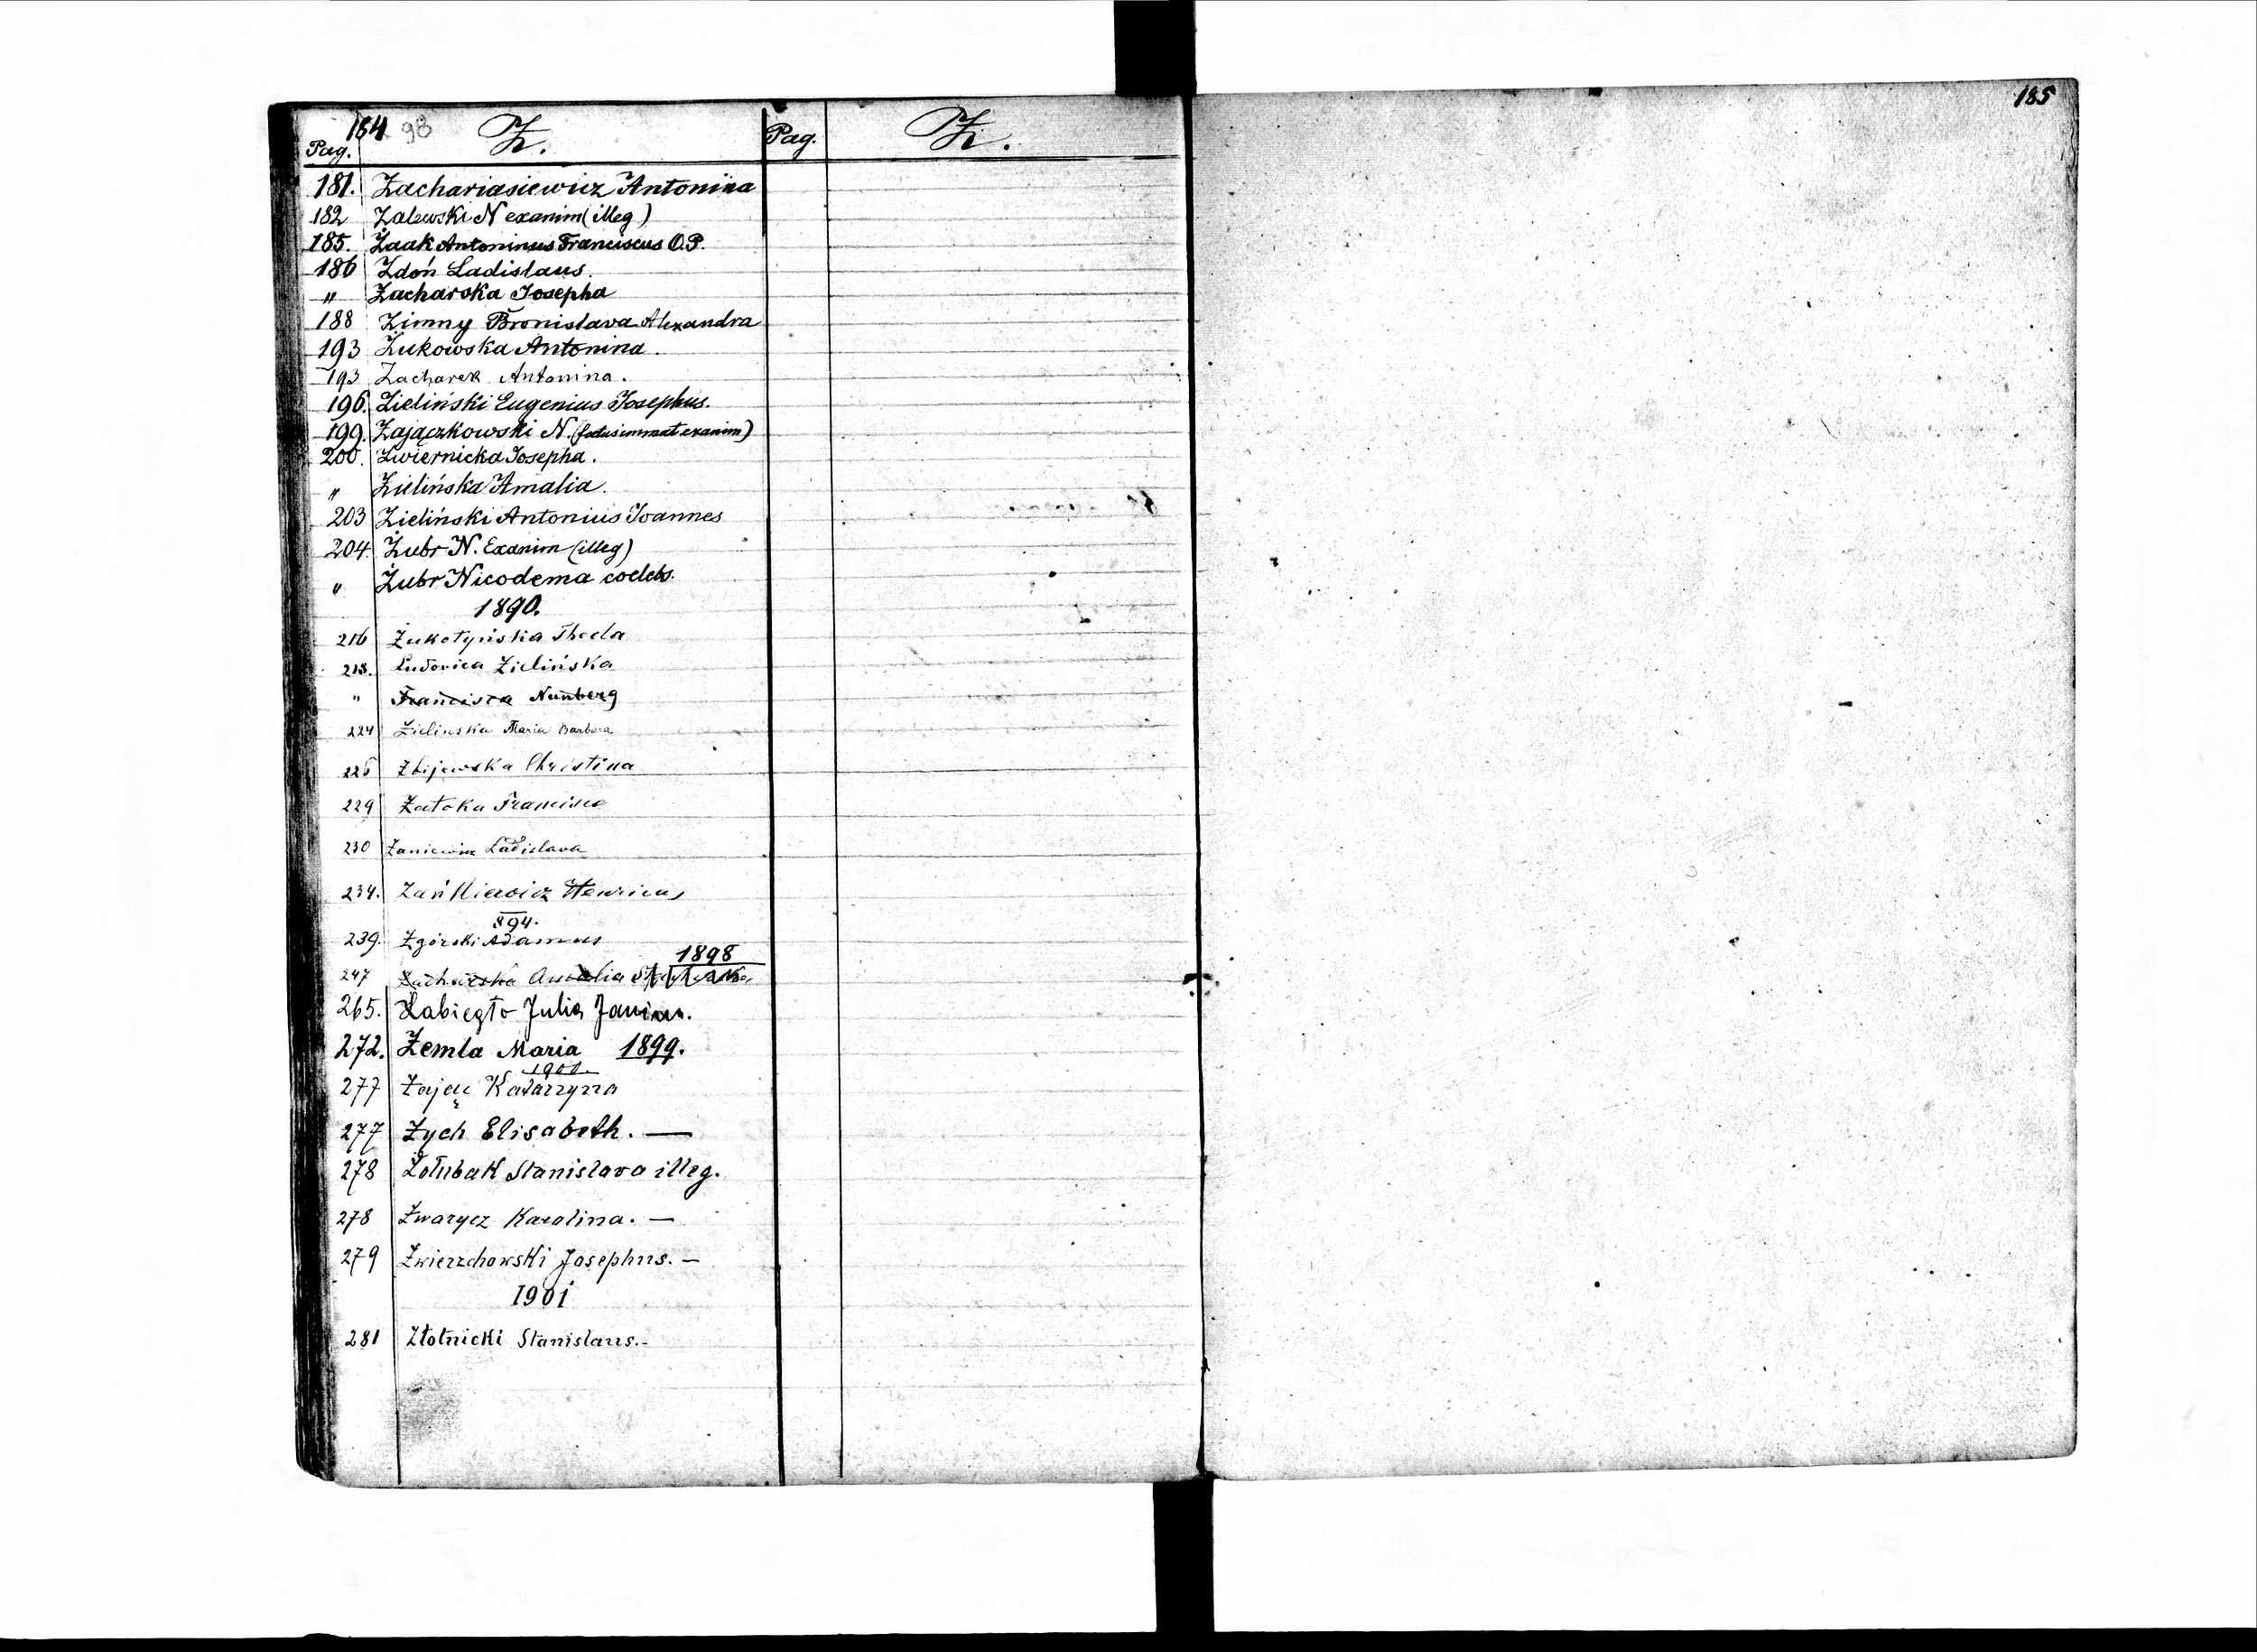 184 98
Pag. Z. Pag. Z. 185
181. Zachariasiewicz Antonina
182 Zalewski N exanim (illeg)
185. Żaak Antoninus Franciscus O.P.
186 Zdoń Ladislaus.
" Zacharska Josepha
188 Zimny Bronislava Alexandra
193 Żukowska Antonina.
193 Zacharek Antonina.
196. Zieliński Eugenius Josephus.
199. Zajączkowski N. (foetus immat exanim)
200. Zwiernicka Josepha.
" Zielińska Amalia.
203 Zieliński Antonius Joannes
204. Żubr N. Exanim (illeg)
" Żubr Nicodema coelebs.
1890.
216 Żukotyńska Thecla
218. Ludovica Zielińska
" Francisca Nunberg
224 Zielinska Maria Barbara
226 Zbijewska Christina
229 Zatoka Francisca
230 Zaniewicz Ladislava
234. Zańkiewicz Henricus
894.
239. Zgórski Adamus
1898
247 Zacharska
265. Zabiegło Julia Janina.
272. Zemla Maria 1899.
1900.
277 Zając Katarzyna
277 Zych Elisabeth. —
278 Żołubak Stanislava illeg.
278 Zwarycz Karolina. —
279 Zwierzchowski Josephus. —
1901
281 Złotnicki Stanislaus.-